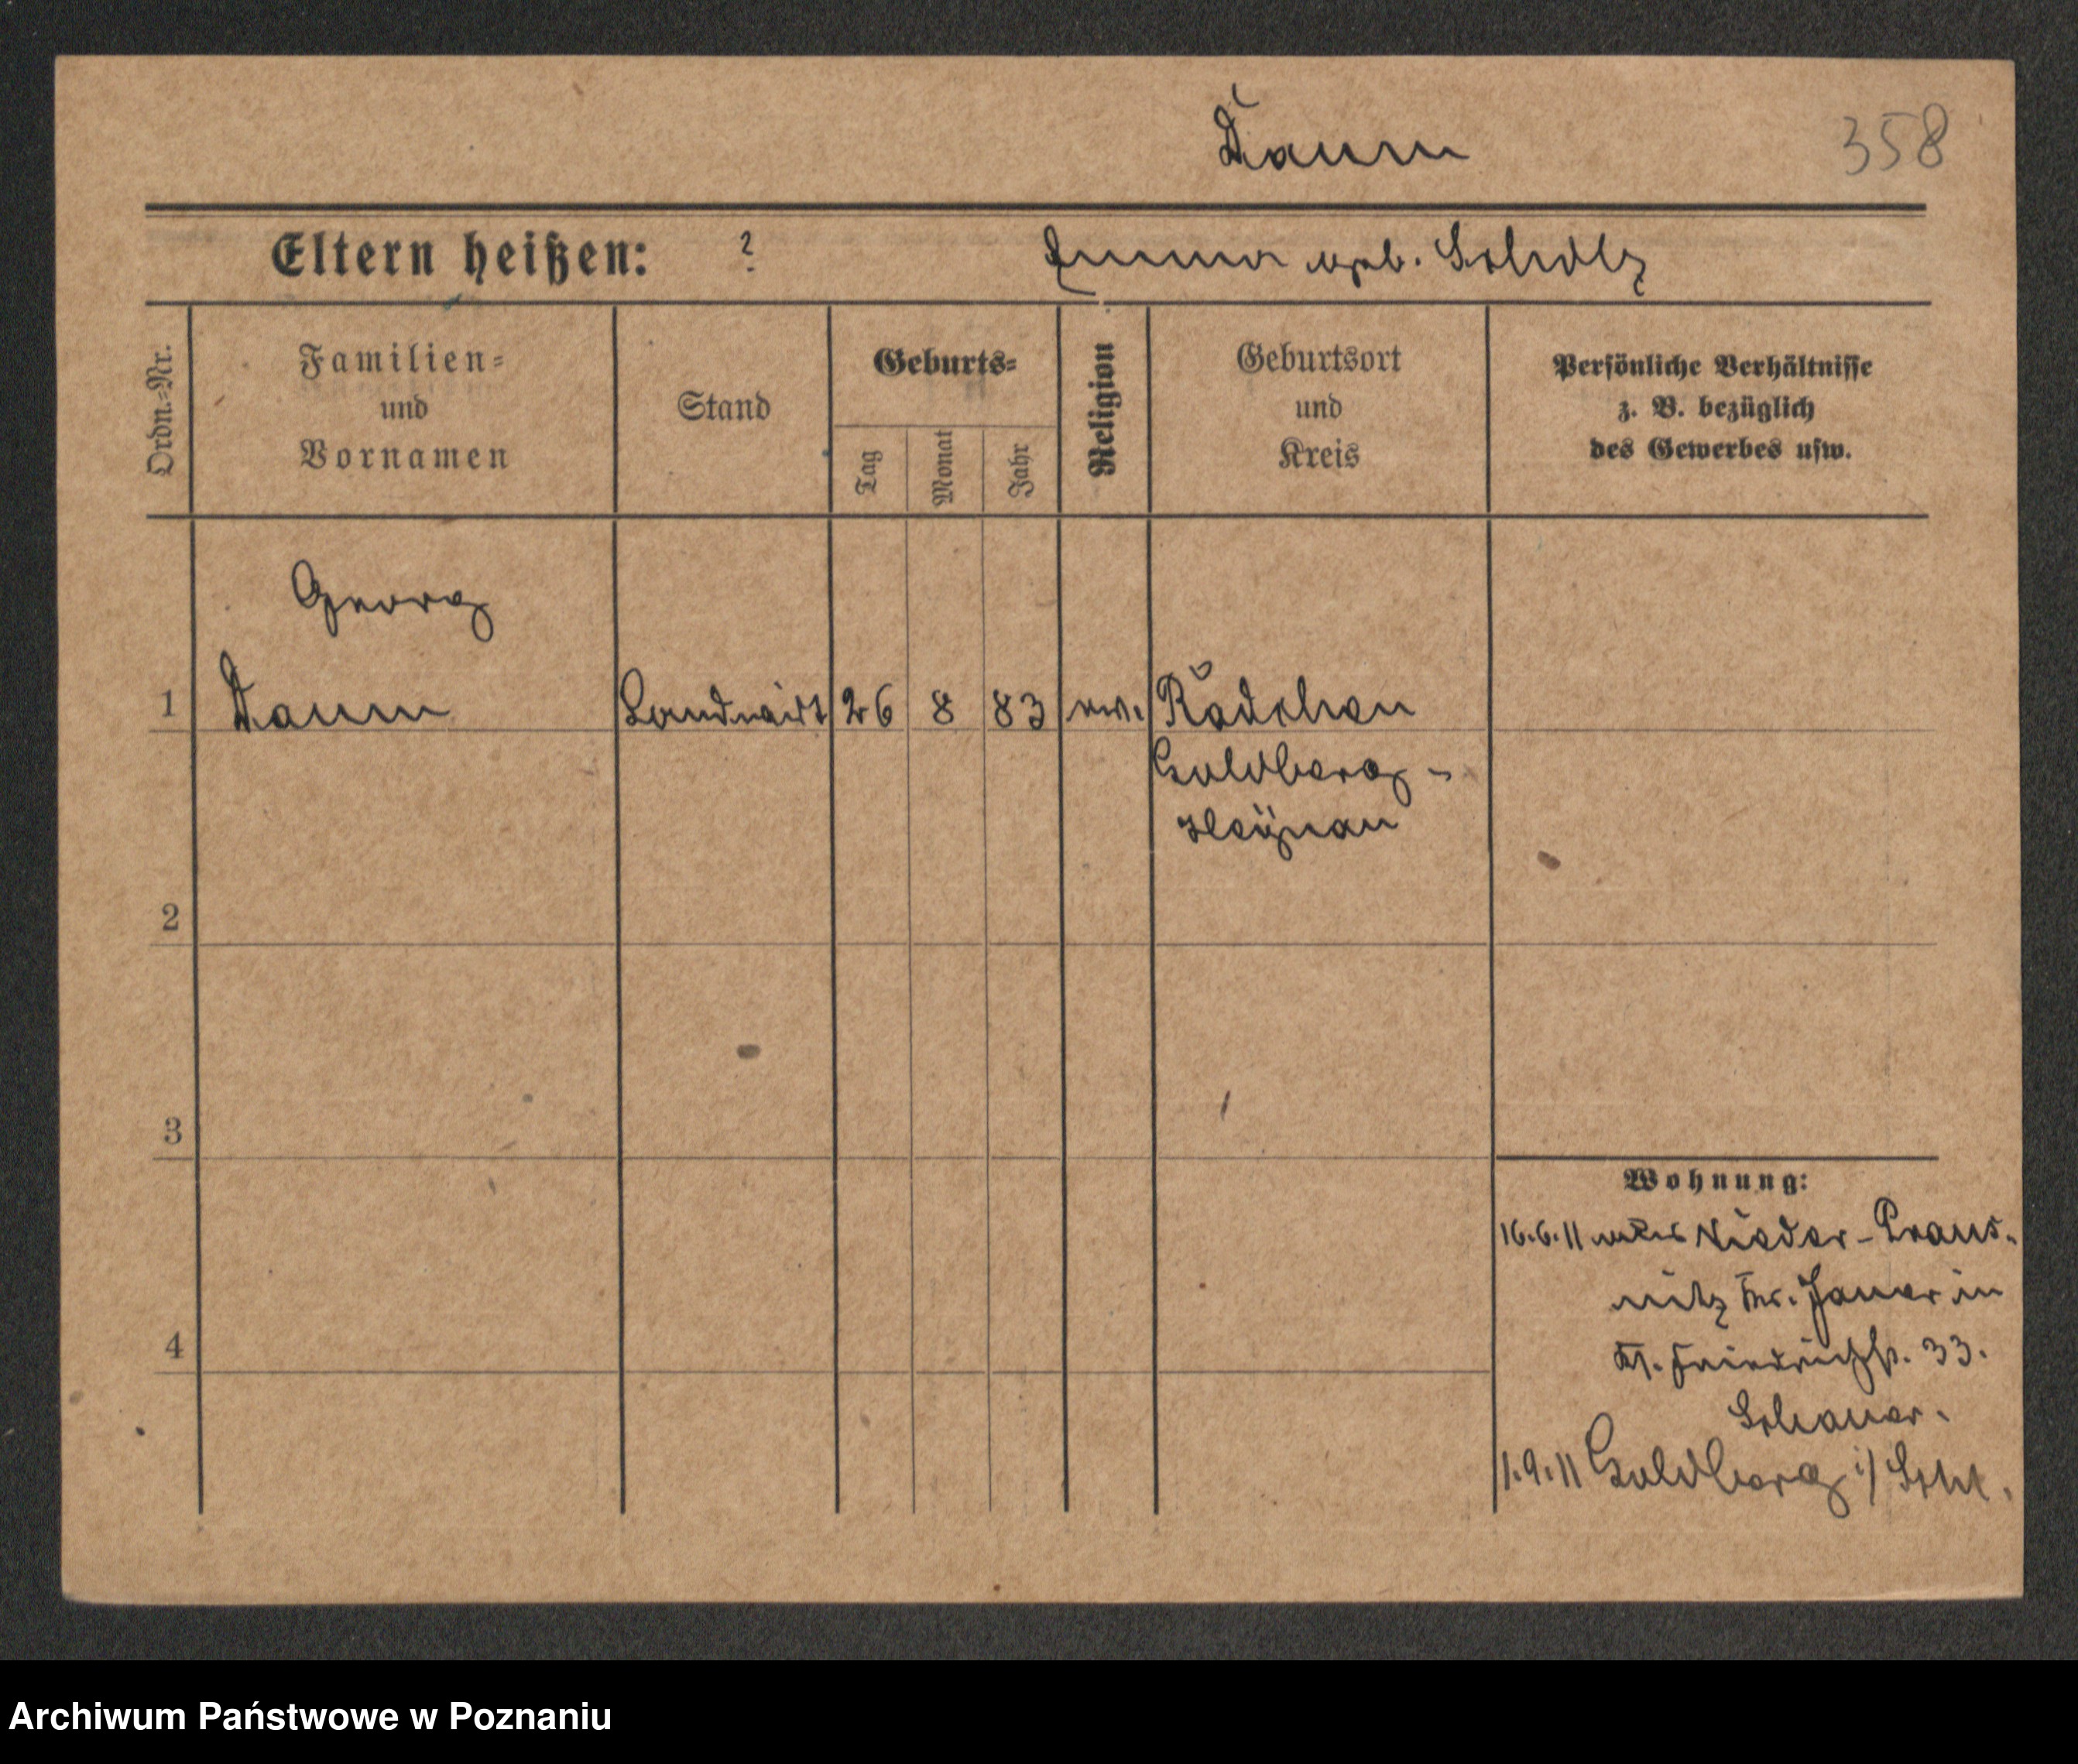 Daum
358
Eltern heißen: ? Emma geb. Scholz
Ordn.=Nr.
Familien=
und
Vornamen
Stand
Geburts=
Tag
Monat
Jahr
Religion
Geburtsort
und
Kreis
Persönliche Verhältnisse
z. B. bezüglich
des Gewerbes usw.
Georg
1 Daum Landwirt 26 8 83 ev. Rädchen
Goldberg-
Haynau
2
3
4
Wohnung:
16.6.11 Nieder-Praus-
nitz Kr. Jauer in
Kl. Friedrichstr. 33.
1.9.11 Goldberg i/ Schl.
Archiwum Państwowe w Poznaniu